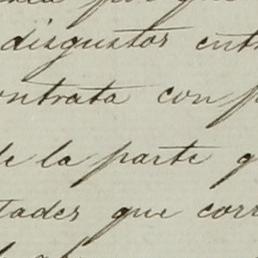 por que
disgustos entr
ontrata con p
de la parte q
tades que corr